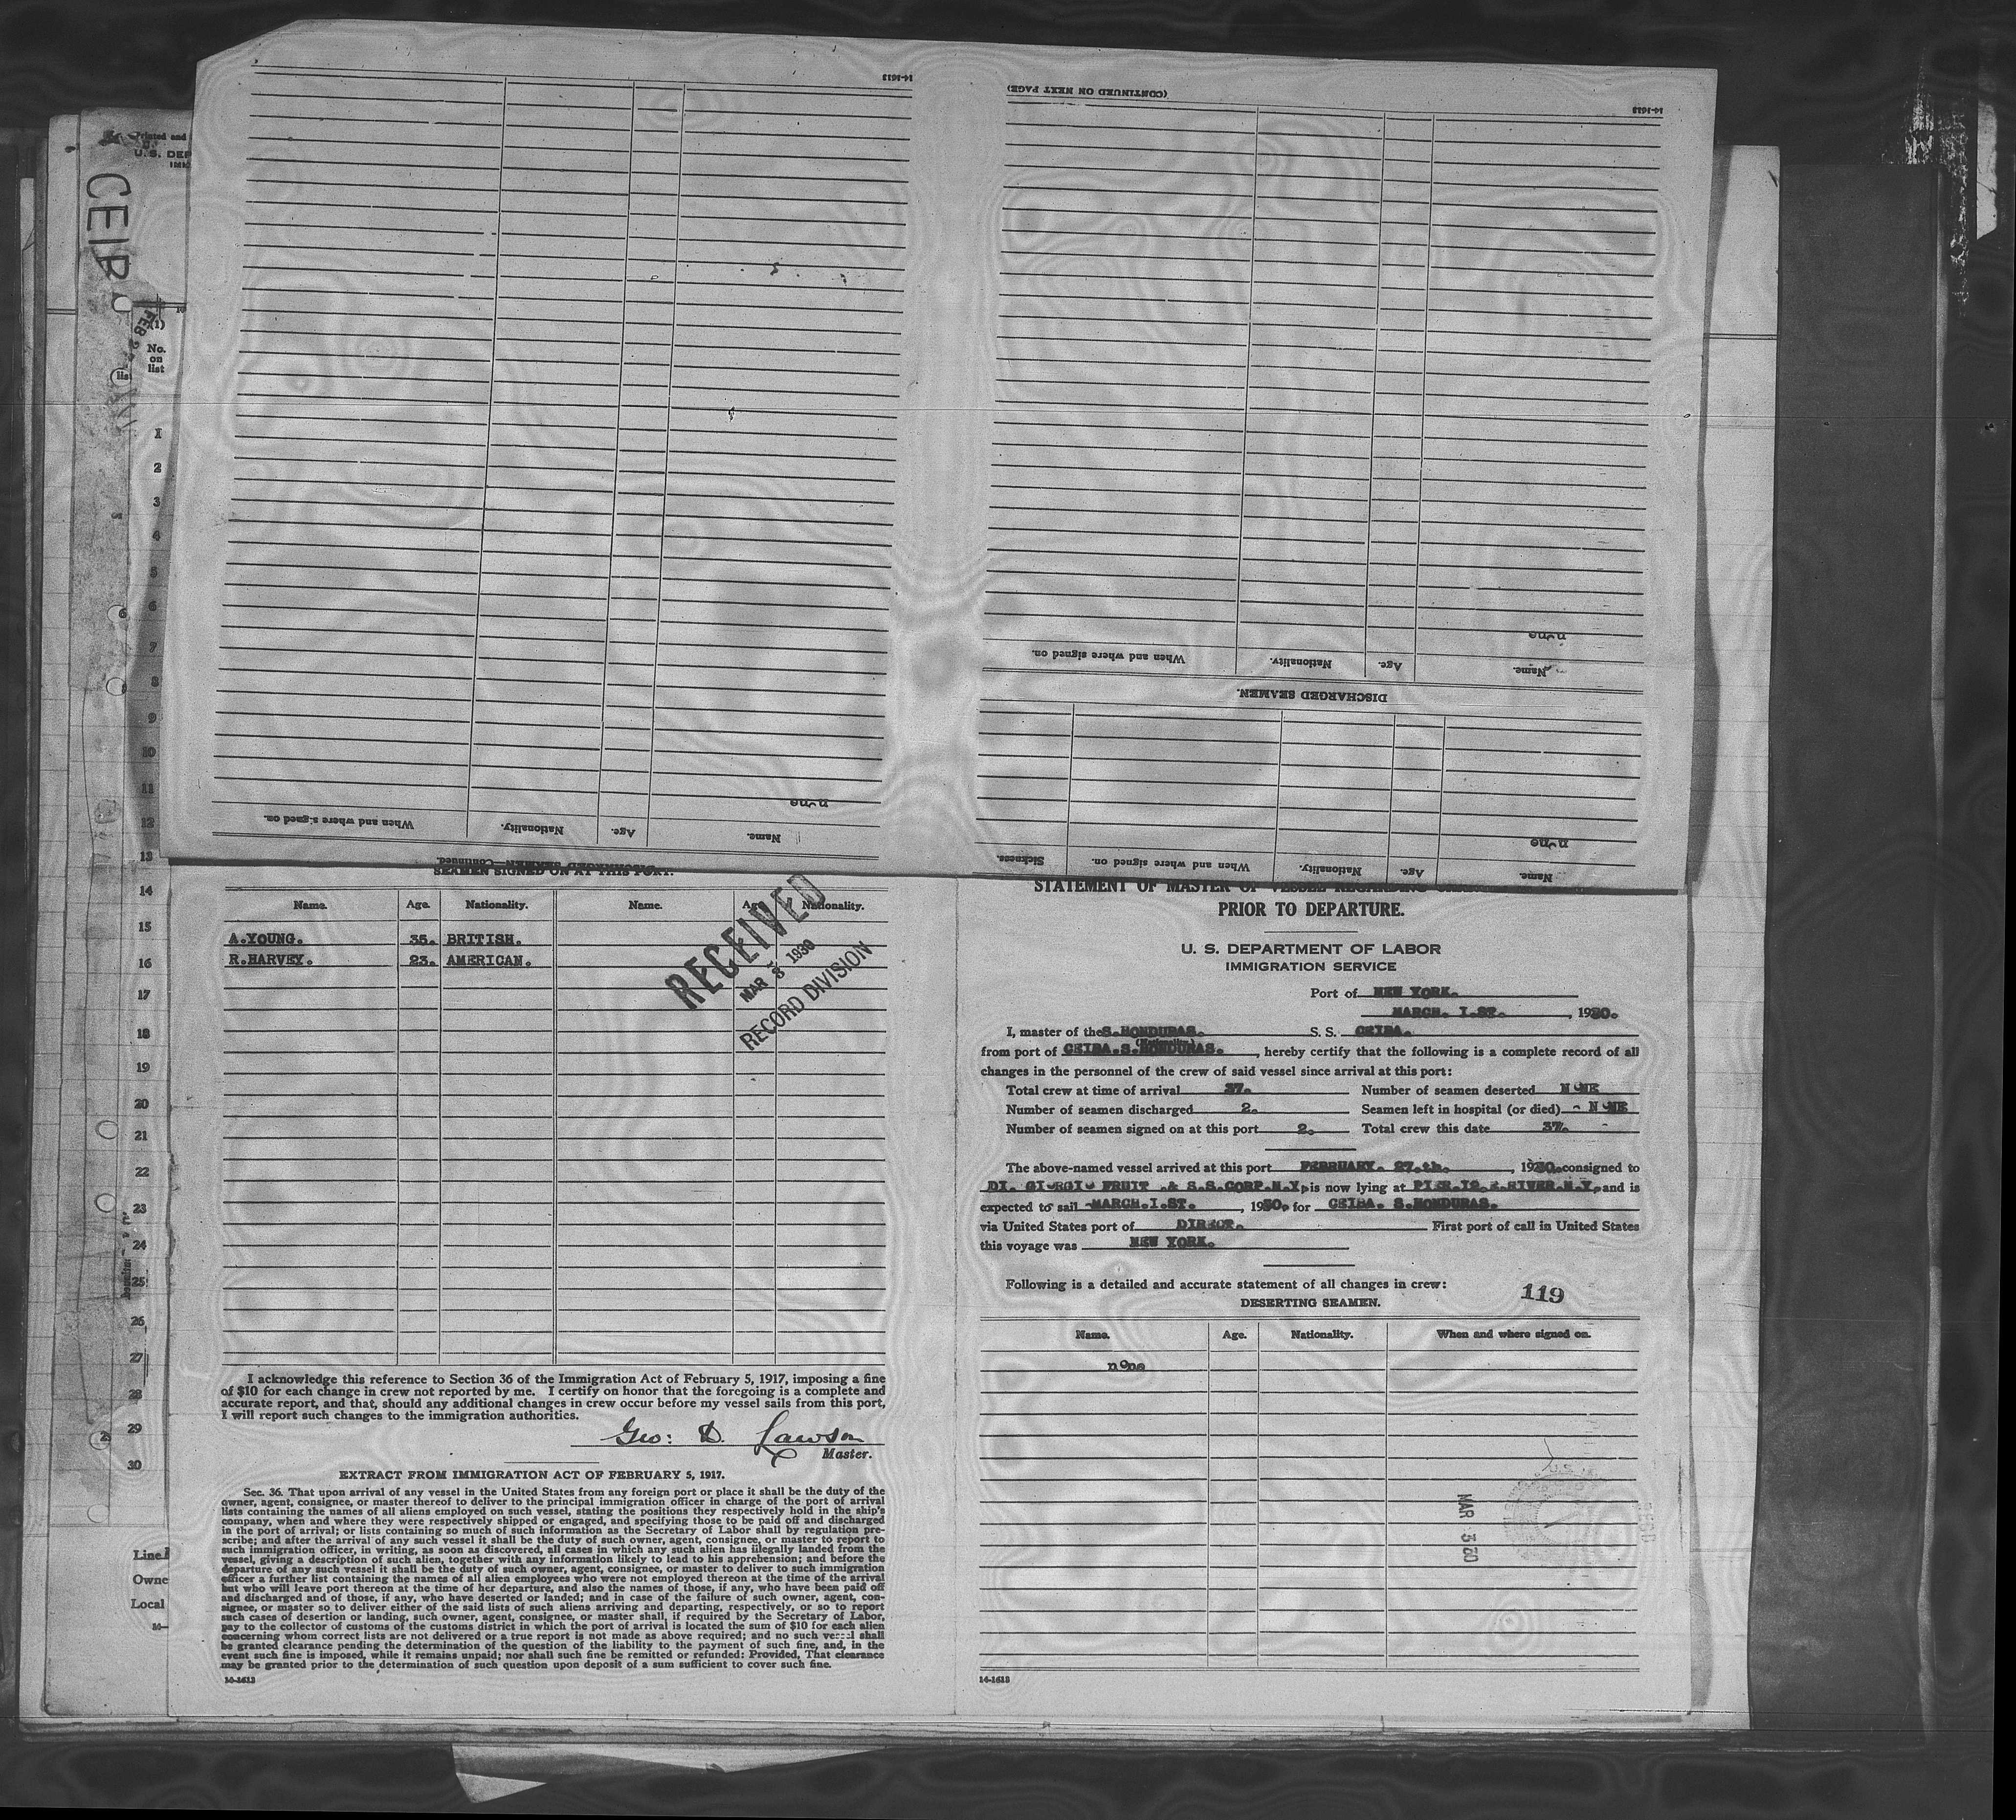 14-1613
(CONTINUED ON NEXT PAGE)
14-1613
none
When and where signed on.
Nationality.
Age.
Name.
DISCHARGED SEAMEN.
none
Name.
Age.
Nationality.
When and where signed on.
none
Name.
Age.
Nationality.
When and where signed on.
Sickness.
DISCHARGED SEAMEN—Continued.
Printed and
U. S. DEP
CEIB
FEB 2
(1)
No.
on
list
1
2
3
4
5
6
7
8
9
10
11
12
13
14
15
16
17
18
19
20
21
22
23
24
25
26
27
28
29
30
Line
Owne
Local
SEAMEN SIGNED ON AT THIS PORT.
Name. Age. Nationality. Name. Age. Nationality.
A.YOUNG. 35. BRITISH.
R.HARVEY. 23. AMERICAN.
RECEIVED
MAR 3 1930
RECORD DIVISION
I acknowledge this reference to Section 36 of the Immigration Act of February 5, 1917, imposing a fine
of $10 for each change in crew not reported by me. I certify on honor that the foregoing is a complete and
accurate report, and that, should any additional changes in crew occur before my vessel sails from this port,
I will report such changes to the immigration authorities.
Geo: D. Lawson
Master.
EXTRACT FROM IMMIGRATION ACT OF FEBRUARY 5, 1917.
Sec. 36. That upon arrival of any vessel in the United States from any foreign port or place it shall be the duty of the
owner, agent, consignee, or master thereof to deliver to the principal immigration officer in charge of the port of arrival
lists containing the names of all aliens employed on such vessel, stating the positions they respectively hold in the ship's
company, when and where they were respectively shipped or engaged, and specifying those to be paid off and discharged
in the port of arrival; or lists containing so much of such information as the Secretary of Labor shall by regulation pre-
scribe; and after the arrival of any such vessel it shall be the duty of such owner, agent, consignee, or master to report to
such immigration officer, in writing, as soon as discovered, all cases in which any such alien has illegally landed from the
vessel, giving a description of such alien, together with any information likely to lead to his apprehension; and before the
departure of any such vessel it shall be the duty of such owner, agent, consignee, or master to deliver to such immigration
officer a further list containing the names of all alien employees who were not employed thereon at the time of the arrival
but who will leave port thereon at the time of her departure, and also the names of those, if any, who have been paid off
and discharged and of those, if any, who have deserted or landed; and in case of the failure of such owner, agent, con-
signee, or master so to deliver either of the said lists of such aliens arriving and departing, respectively, or so to report
such cases of desertion or landing, such owner, agent, consignee, or master shall, if required by the Secretary of Labor,
pay to the collector of customs of the customs district in which the port of arrival is located the sum of $10 for each alien
concerning whom correct lists are not delivered or a true report is not made as above required; and no such vessel shall
be granted clearance pending the determination of the question of the liability to the payment of such fine, and, in the
event such fine is imposed, while it remains unpaid; nor shall such fine be remitted or refunded: Provided, That clearance
may be granted prior to the determination of such question upon deposit of a sum sufficient to cover such fine.
14-1613
STATEMENT OF MASTER OF VESSEL REGARDING
PRIOR TO DEPARTURE.
U. S. DEPARTMENT OF LABOR
IMMIGRATION SERVICE
Port of NEW YORK.
MARCH. I.ST. , 1930.
I, master of the S.HONDURAS. S. S. CEIBA.
(Nationality)
from port of CEIBA.S.HONDURAS. , hereby certify that the following is a complete record of all
changes in the personnel of the crew of said vessel since arrival at this port:
Total crew at time of arrival 37. Number of seamen deserted NONE
Number of seamen discharged 2. Seamen left in hospital (or died) - NONE
Number of seamen signed on at this port 2. Total crew this date 37.
The above-named vessel arrived at this port FEBRUARY. 27.th. , 1930. consigned to
DI. GIORGIO FRUIT .& S.S.CORP.N.Y, is now lying at PIER.12.E.RIVER.N.Y, and is
expected to sail -MARCH.I.ST. , 1930. for CEIBA. S.HONDURAS.
via United States port of DIRECT. First port of call in United States
this voyage was NEW YORK.
Following is a detailed and accurate statement of all changes in crew:
119
DESERTING SEAMEN.
Name. Age. Nationality. When and where signed on.
none
MAR 3 30
14-1613